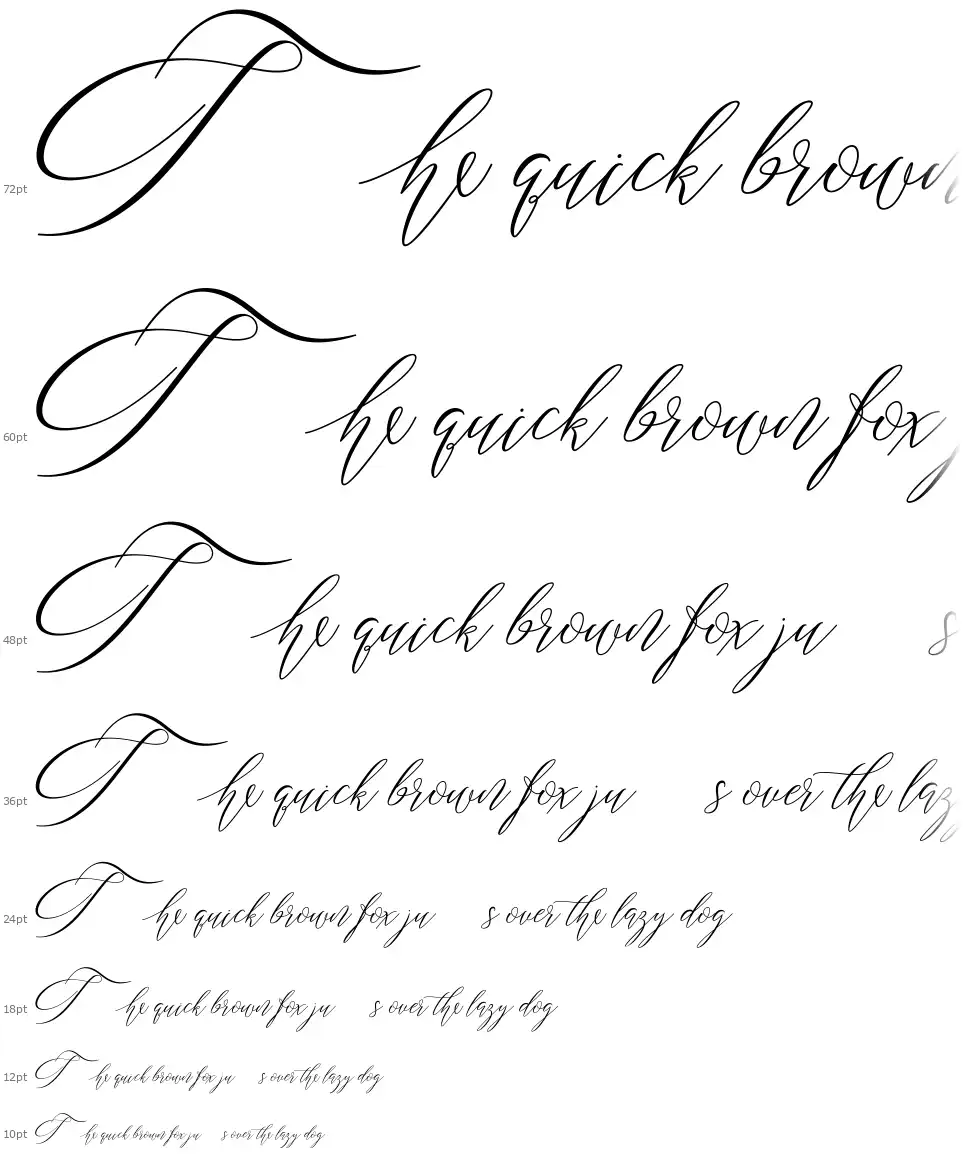 72pt The quick brown
60pt The quick brown fox j
48pt The quick brown fox ju s
36pt The quick brown fox ju s over the laz
24pt The quick brown fox ju s over the lazy dog
18pt The quick brown fox ju s over the lazy dog
12pt The quick brown fox ju s over the lazy dog
10pt The quick brown fox ju s over the lazy dog